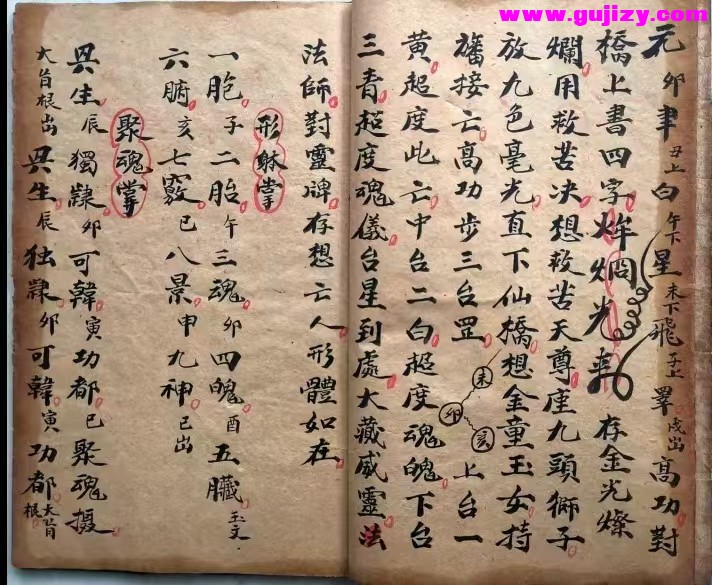 www.gujizy.com
元 卯 聿 丑上 白 午下 星 未下 飛 子上 睪 戌出 高功對
橋上書四字 光 存金光燦
爛用救苦决想救苦天尊座九頭獅子
放九色毫光直下仙橋想金童玉女持
旛接亡高功步三台罡 未 卯 亥 上台一
黄超度此亡中台二白超度魂魄下台
三青超度魂儀台星到處大藏威靈法
法師對靈牌存想亡人形體如在
形躰掌
一胞 子 二胎 午 三魂 卯 四魄 酉 五臟 玉文
六腑 亥 七竅 巳 八景 申 九神 巳出
聚魂掌
兴生 辰 獨隷 卯 可韓 寅 功都 巳 聚魂摄
大旨根出 兴生 辰 独隷 卯 可韓 寅 功都 大旨根